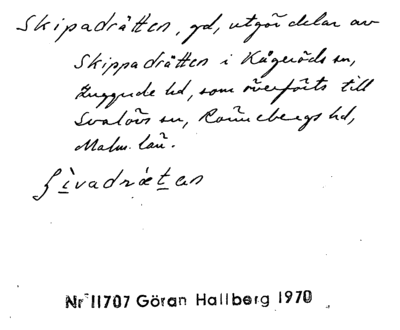 Skipadrätten, gd, utgör delar av
Skippadrätten i Kågeröds sn,
Luggude hd, som överförts till
Svalövs sn, Rönnebergs hd,
Malm. län.
ʃi̠vadræt̠en
Nr 11707 Göran Hallberg 1970